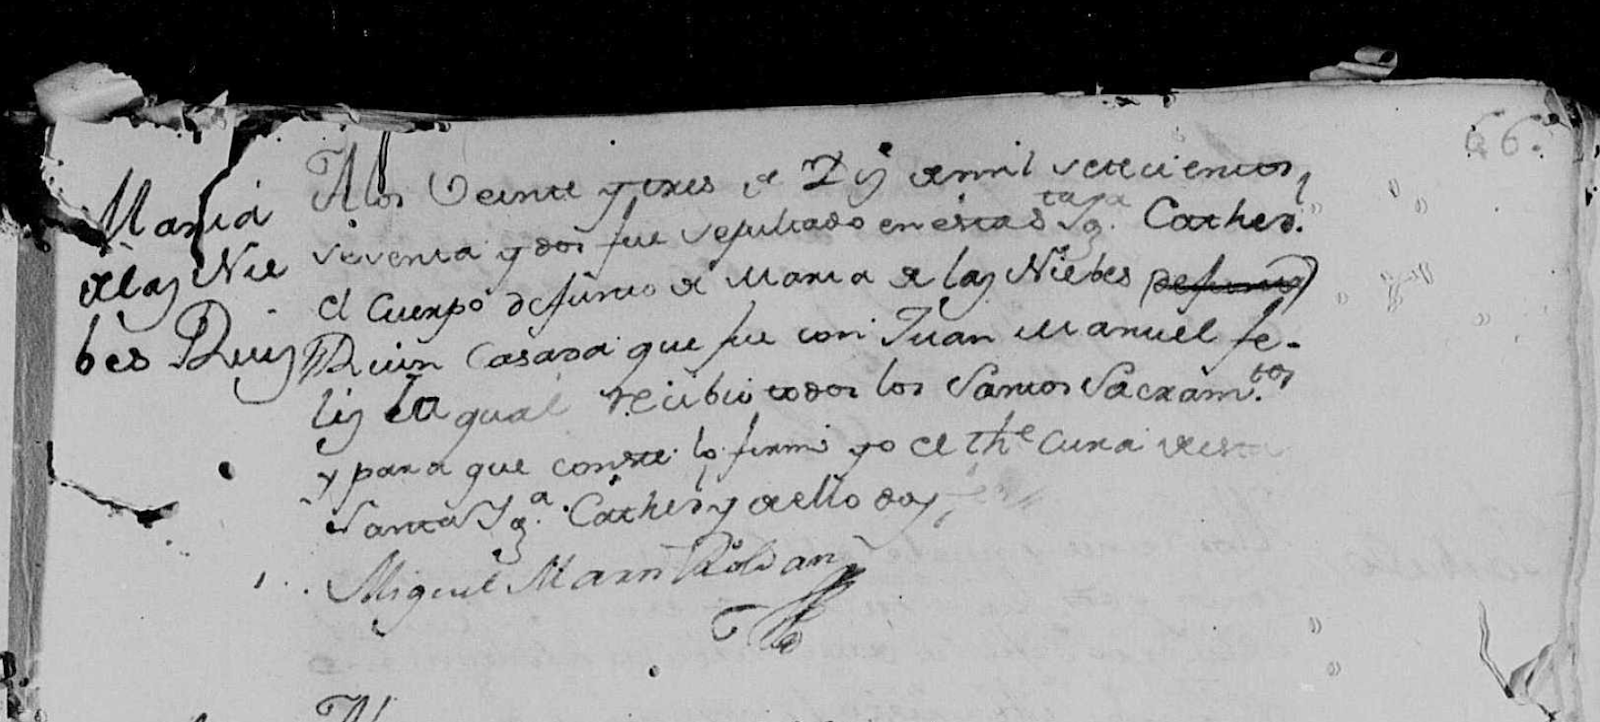 66.
Maria
de las Nie
bes Ruiz
A los Veinte y tres de de mil setecientos
setenta y dos fue sepultado en esta Sta Yga. Cathed.
el Cuerpo defunto de Maria de las Niebes
Ruiz Casada que fue con Juan Manuel fe-
liz la qual recibio todos los Santos Sacram.tos
y para que conste lo firme yo el The Cura de esta
Santa Yga. Cathed y de ello doy
Miguel Marn Roldan